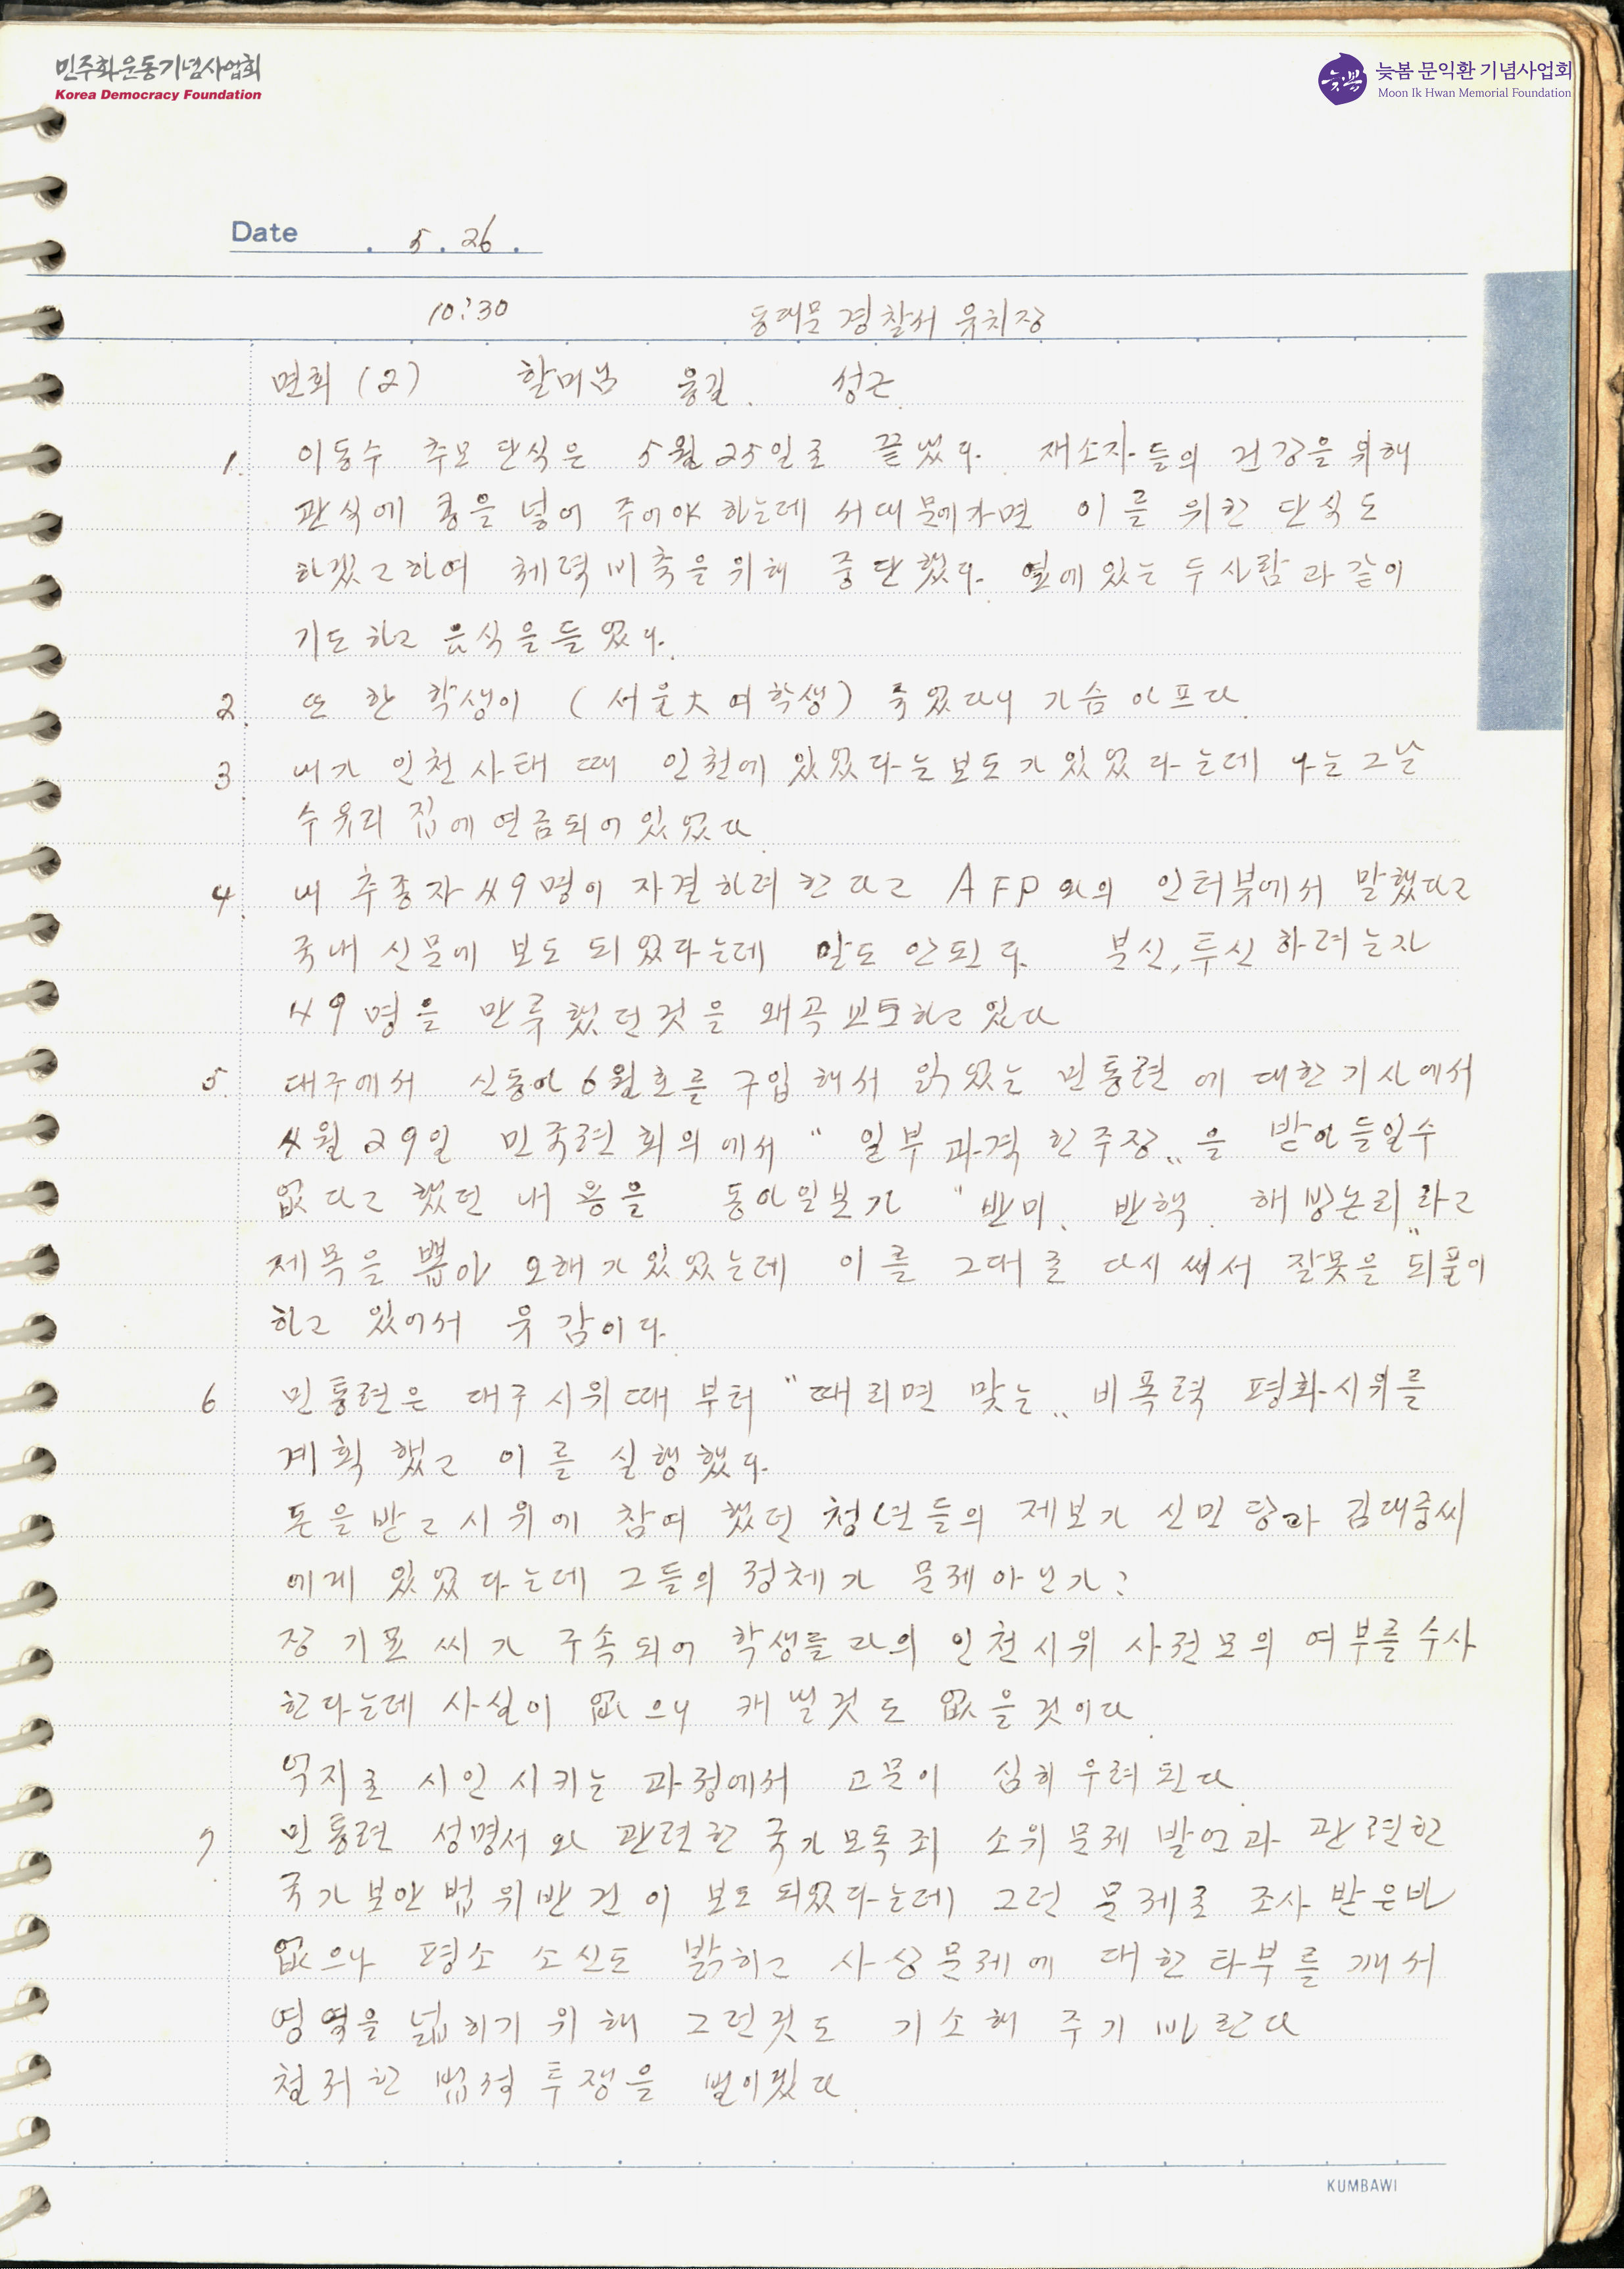 민주화운동기념사업회
Korea Democracy Foundation
늦봄 문익환 기념사업회
Moon Ik Hwan Memorial Foundation
Date . 5 . 26 .
10:30 동대문 경찰서 유치장
면회 (2) 할머님 용길. 성근.
1. 이동수 추모 단식은 5월 25일로 끝냈다. 재소자들의 건강을 위해
관식에 콩을 넣어 주어야 하는데 서대문에가면 이를 위한 단식도
하겠고하여 체력비축을 위해 중단했다. 옆에 있는 두 사람과 같이
기도하고 음식을 들었다.
2. 또 한 학생이 (서울大 여학생) 죽었다니 가슴 아프다.
3. 내가 인천사태 때 인천에 있었다는 보도가 있었다는데 나는 그날
수유리 집에 연금되어 있었다.
4. 내 추종자 49명이 자결하려 한다고 AFP와의 인터뷰에서 말했다고
국내 신문에 보도 되었다는데 말도 안된다. 분신, 투신 하려는자
49명을 만류했던것을 왜곡 보도하고 있다
5. 대구에서 신동아 6월호를 구입해서 읽었는 민통련에 대한 기사에서
4월 29일 민국련 회의에서 "일부 과격한 주장"을 받아들일수
없다고 했던 내용을 동아일보가 "반미, 반핵, 해방논리"라고
제목을 뽑아 오해가 있었는데 이를 그대로 다시 써서 잘못을 되풀이
하고 있어서 유감이다.
6 민통련은 대구시위때 부터 "때리면 맞는" 비폭력 평화시위를
계획했고 이를 실행했다.
돈을 받고 시위에 참여했던 청년들의 제보가 신민당과 김대중씨
에게 있었다는데 그들의 정체가 문제 아닌가?
장기표 씨가 구속되어 학생들과의 인천시위 사전모의 여부를 수사
한다는데 사실이 없으니 캐낼것도 없을것이다.
억지로 시인시키는 과정에서 고문이 심히 우려된다.
7. 민통련 성명서와 관련한 국가모독죄 소위 문제 발언과 관련한
국가보안법위반건이 보도되었다는데 그런 문제로 조사 받은바
없으나 평소 소신도 밝히고 사상문제에 대한 타부를 깨서
영역을 넓히기 위해 그런것도 기소해 주기 바란다
철저한 법적 투쟁을 벌이겠다.
KUMBAWI